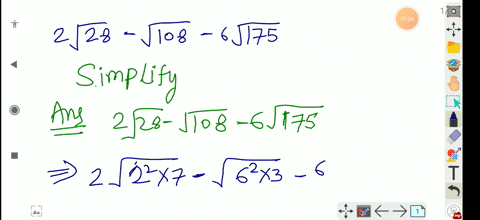 2√28 - √108 - 6√175
Simplify
Ans 2√28 - √108 - 6√175
⇒ 2√2²×7 - √6²×3 - 6